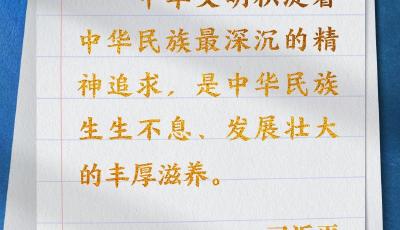 中华文明积淀着
中华民族最深沉的精
神追求，是中华民族
生生不息、发展壮大
的丰厚滋养。